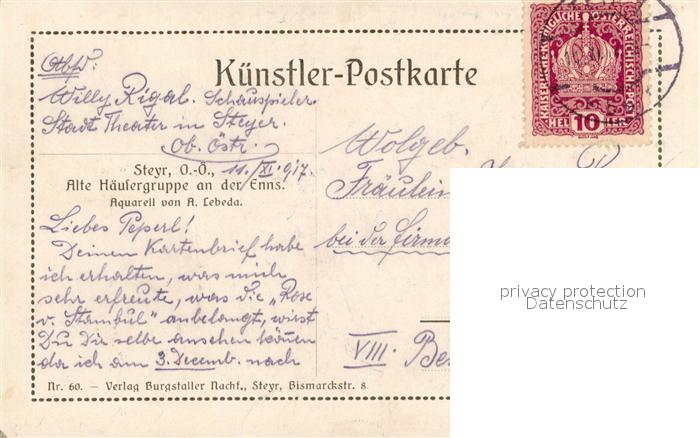 Otbfd:
Künstler-Postkarte
Willy Rigal. Schauspieler.
Stadt Theater in Steyer.
Ob. Östr.
KAISERLICHE KÖNIGLICHE ÖSTERREICHISCHE POST
HELLER 10
Steyr, O.-Ö., 11./XI. 917.
Alte Häusergruppe an der Enns.
Aquarell von A. Lebeda.
Wolgeb.
Fräulein
bei der Firma
VIII. Be
Liebes Peperl!
Deinen Kartenbrief habe
ich erhalten, was mich
sehr erfreute, was die „Rose
v. Stambul" anbelangt, wirst
Du Dir selbe ansehen können
da ich am 3. Decemb. nach
Nr. 60. — Verlag Burgstaller Nachf., Steyr, Bismarckstr. 8
privacy protection
Datenschutz